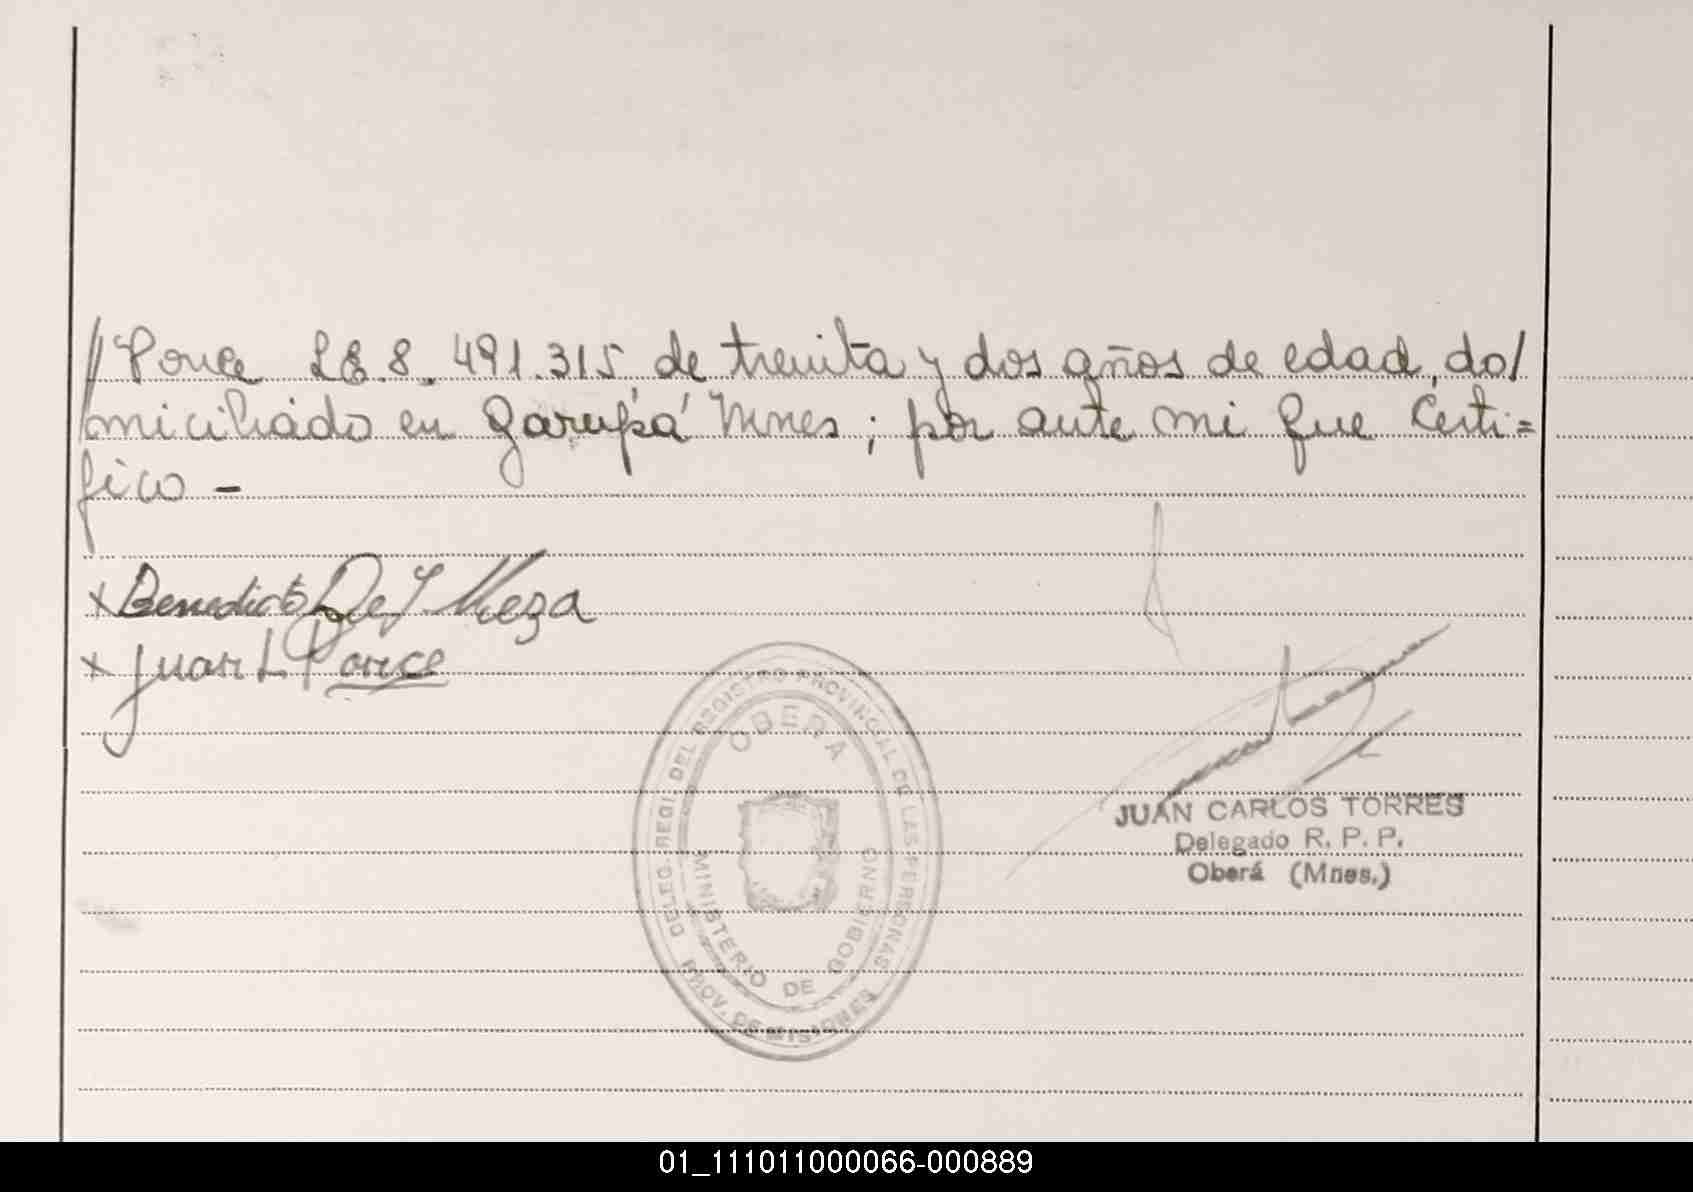 // Ponce L.E. 8.491.315, de treinta y dos años de edad, do/
miciliado en Garupá Mnes; por ante mi que Certi=
fico -
x Benedicto De J. Meza
x Juan L Ponce
DELEG. REGI. DEL REGISTRO PROVINCIAL DE LAS PERSONAS
OBERA
MINISTERIO DE GOBIERNO
PROV. DE MISIONES
JUAN CARLOS TORRES
Delegado R. P. P.
Oberá (Mnes.)
01_111011000066-000889